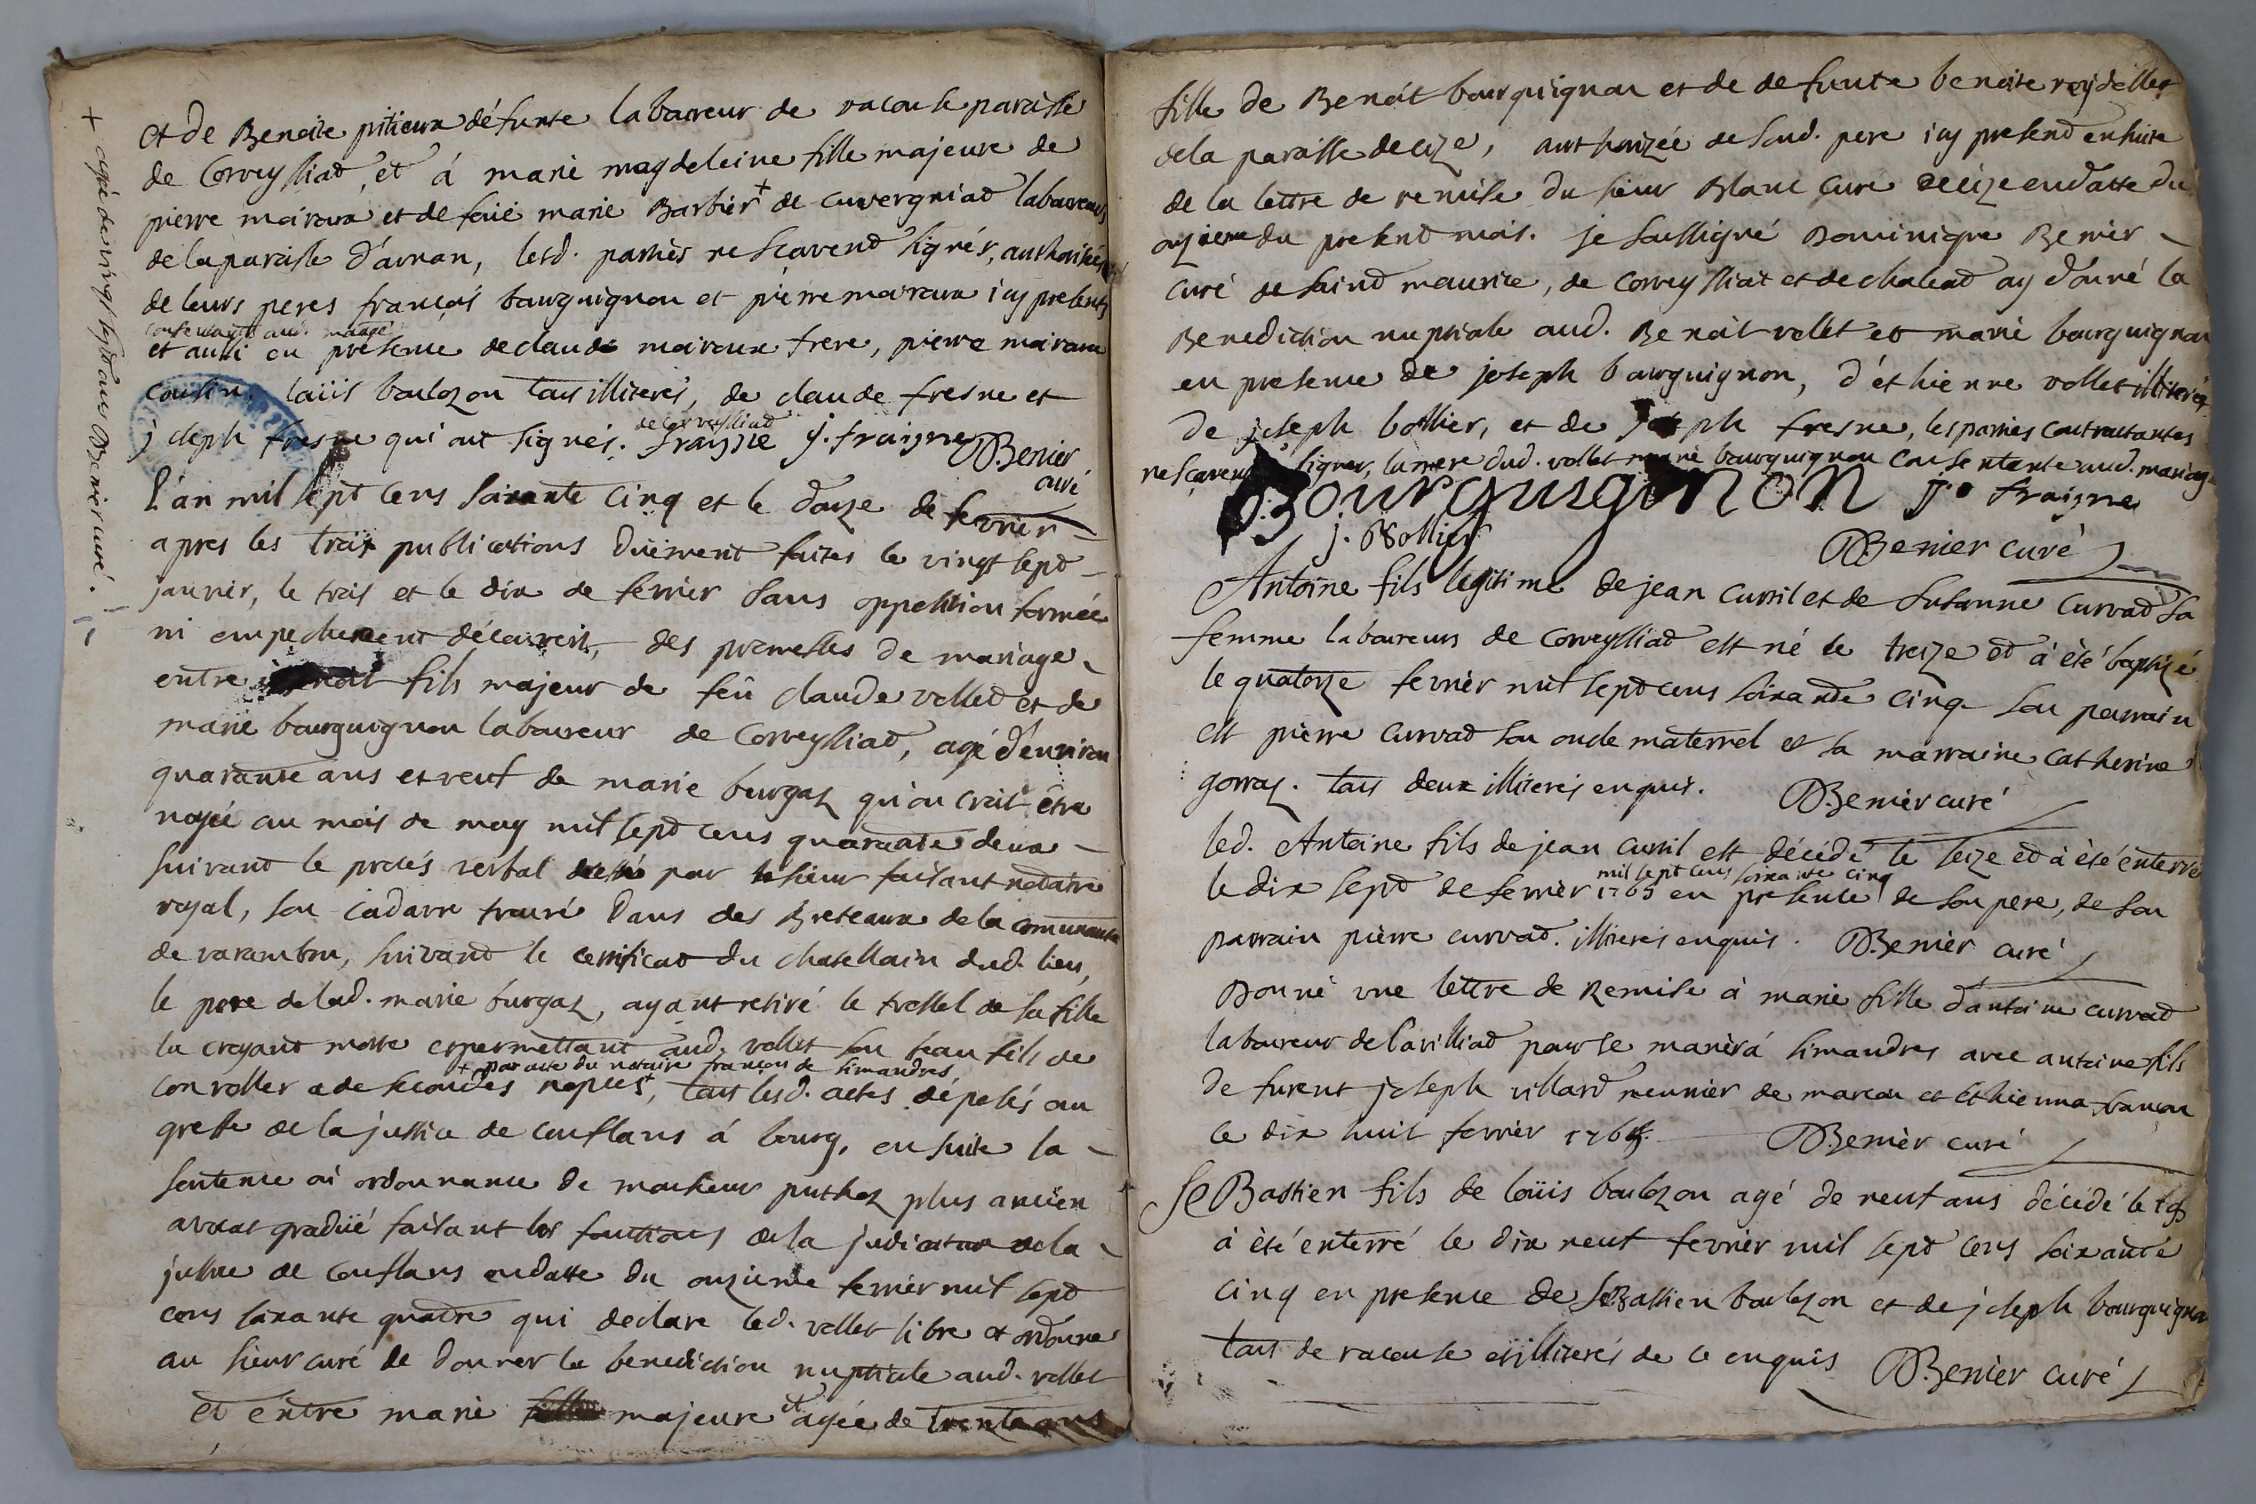 et de Benoite pitieux défunte laboureur de racouse paroisse
de Corveyssiad, et à marie magdeleine fille majeure de
pierre moiroux et de feüe marie Barbier + de cuvergniad laboureurs
de la paroisse d'arnan, lesd. parties ne sçavend signés, authorisées
de leurs peres françois bourguignon et pierre moiroux icy presents
consentants aud. mariage
et aussi en présence de claude moiroux frere, pierre moiroux
cousin, loüis boulozon tous illiterés, de claude fresne et
de corveyssiad
joseph fresne qui ont signés. fraisne j. fraisne Benier
curé
+ agée de vingt sept ans Benier curé.
L'an mil sept cens soixante cinq et le douze de fevrier
apres les trois publications duëment faites le vingt sept
janvier, le trois et le dix de fevrier sans opposition formée
ni empechement découvert, des promesses de mariage
entre benoit fils majeur de feü claude vollet et de
marie bourguignon laboureur de Corveyssiad, agé d'environ
quarante ans et veuf de marie burgaz qu'on croit être
noyée au mois de may mil sept cens quarante deux
suivant le procés verbal dressé par le sieur faisant notaire
royal, son cadavre trouvé dans des Breteaux de la communauté
de varambon, suivant le certificat du chatellain dud. lieu,
le pere de lad. marie burgaz, ayant retiré le trossel de sa fille
la croyant morte et permettant aud. vollet son beau fils de
+ par acte du notaire françon de simandres
convoller a de secondes nopces +, tous lesd. actes déposés au
greffe de la justice de conflans à bourg, ensuite la
sentence où ordonnance de monsieur puthoz plus ancien
avocat gradüé faisant les fonctions de la judicature de la
justice de conflans en datte du onzieme fevrier mil sept
cens soixante quatre qui declare led. vollet libre et ordonne
au sieur curé de donner la benediction nuptiale aud. vollet
et entre marie majeure et agée de trente ans
fille de Benoit bourguignon et de defunte benoite reydellet
de la paroisse de cize, authorizée de sond. pere icy present ensuite
de la lettre de remise du sieur Blanc curé de cize en datte du
onzieme du present mois. je soussigné Dominique Benier
curé de saind maurice, de corveyssiat et de chaleat ay donné la
Benediction nuptiale aud. Benoit vollet et marie bourguignon
en presence de joseph bourguignon, d'ethienne vollet illiterés
de joseph bollier, et de joseph fresne, les parties contractantes
ne sçavent signer, la mere dud. vollet marie bourguignon consentante aud. mariage
Bourguignon J. fraisne
j. Bollier
Benier curé
Antoine fils legitime de jean curvil et de susanne curvad sa
femme laboureurs de Corveyssiad est né le treize et à été baptizé
le quatorze fevrier mil sept cens soixante cinq son parrain
est pierre curvad son oncle maternel et sa marraine catherine
gorraz. tous deux illiterés enquis. Benier curé
led. Antoine fils de jean curvil est décédé le seize et à été enterré
mil sept cens soixante cinq
le dix sept de fevrier 1765 en presence de son pere, de son
parrain pierre curvad. illiterés enquis. Benier curé
Donné une lettre de Remise à marie fille d'antoine curvad
laboureur de lavilliad pour se marier à simandres avec antoine fils
de furent joseph villard meunier de marcou et ethienna françon
ce dix huit fevrier 1765. Benier curé
SeBastien fils de loüis boulozon agé de neuf ans décédé le 18
à été enterré le dix neuf fevrier mil sept cens soixante
cinq en presence de SeBastien boulozon et de joseph bourguignon
tous de racouse et illiterés de ce enquis Benier curé